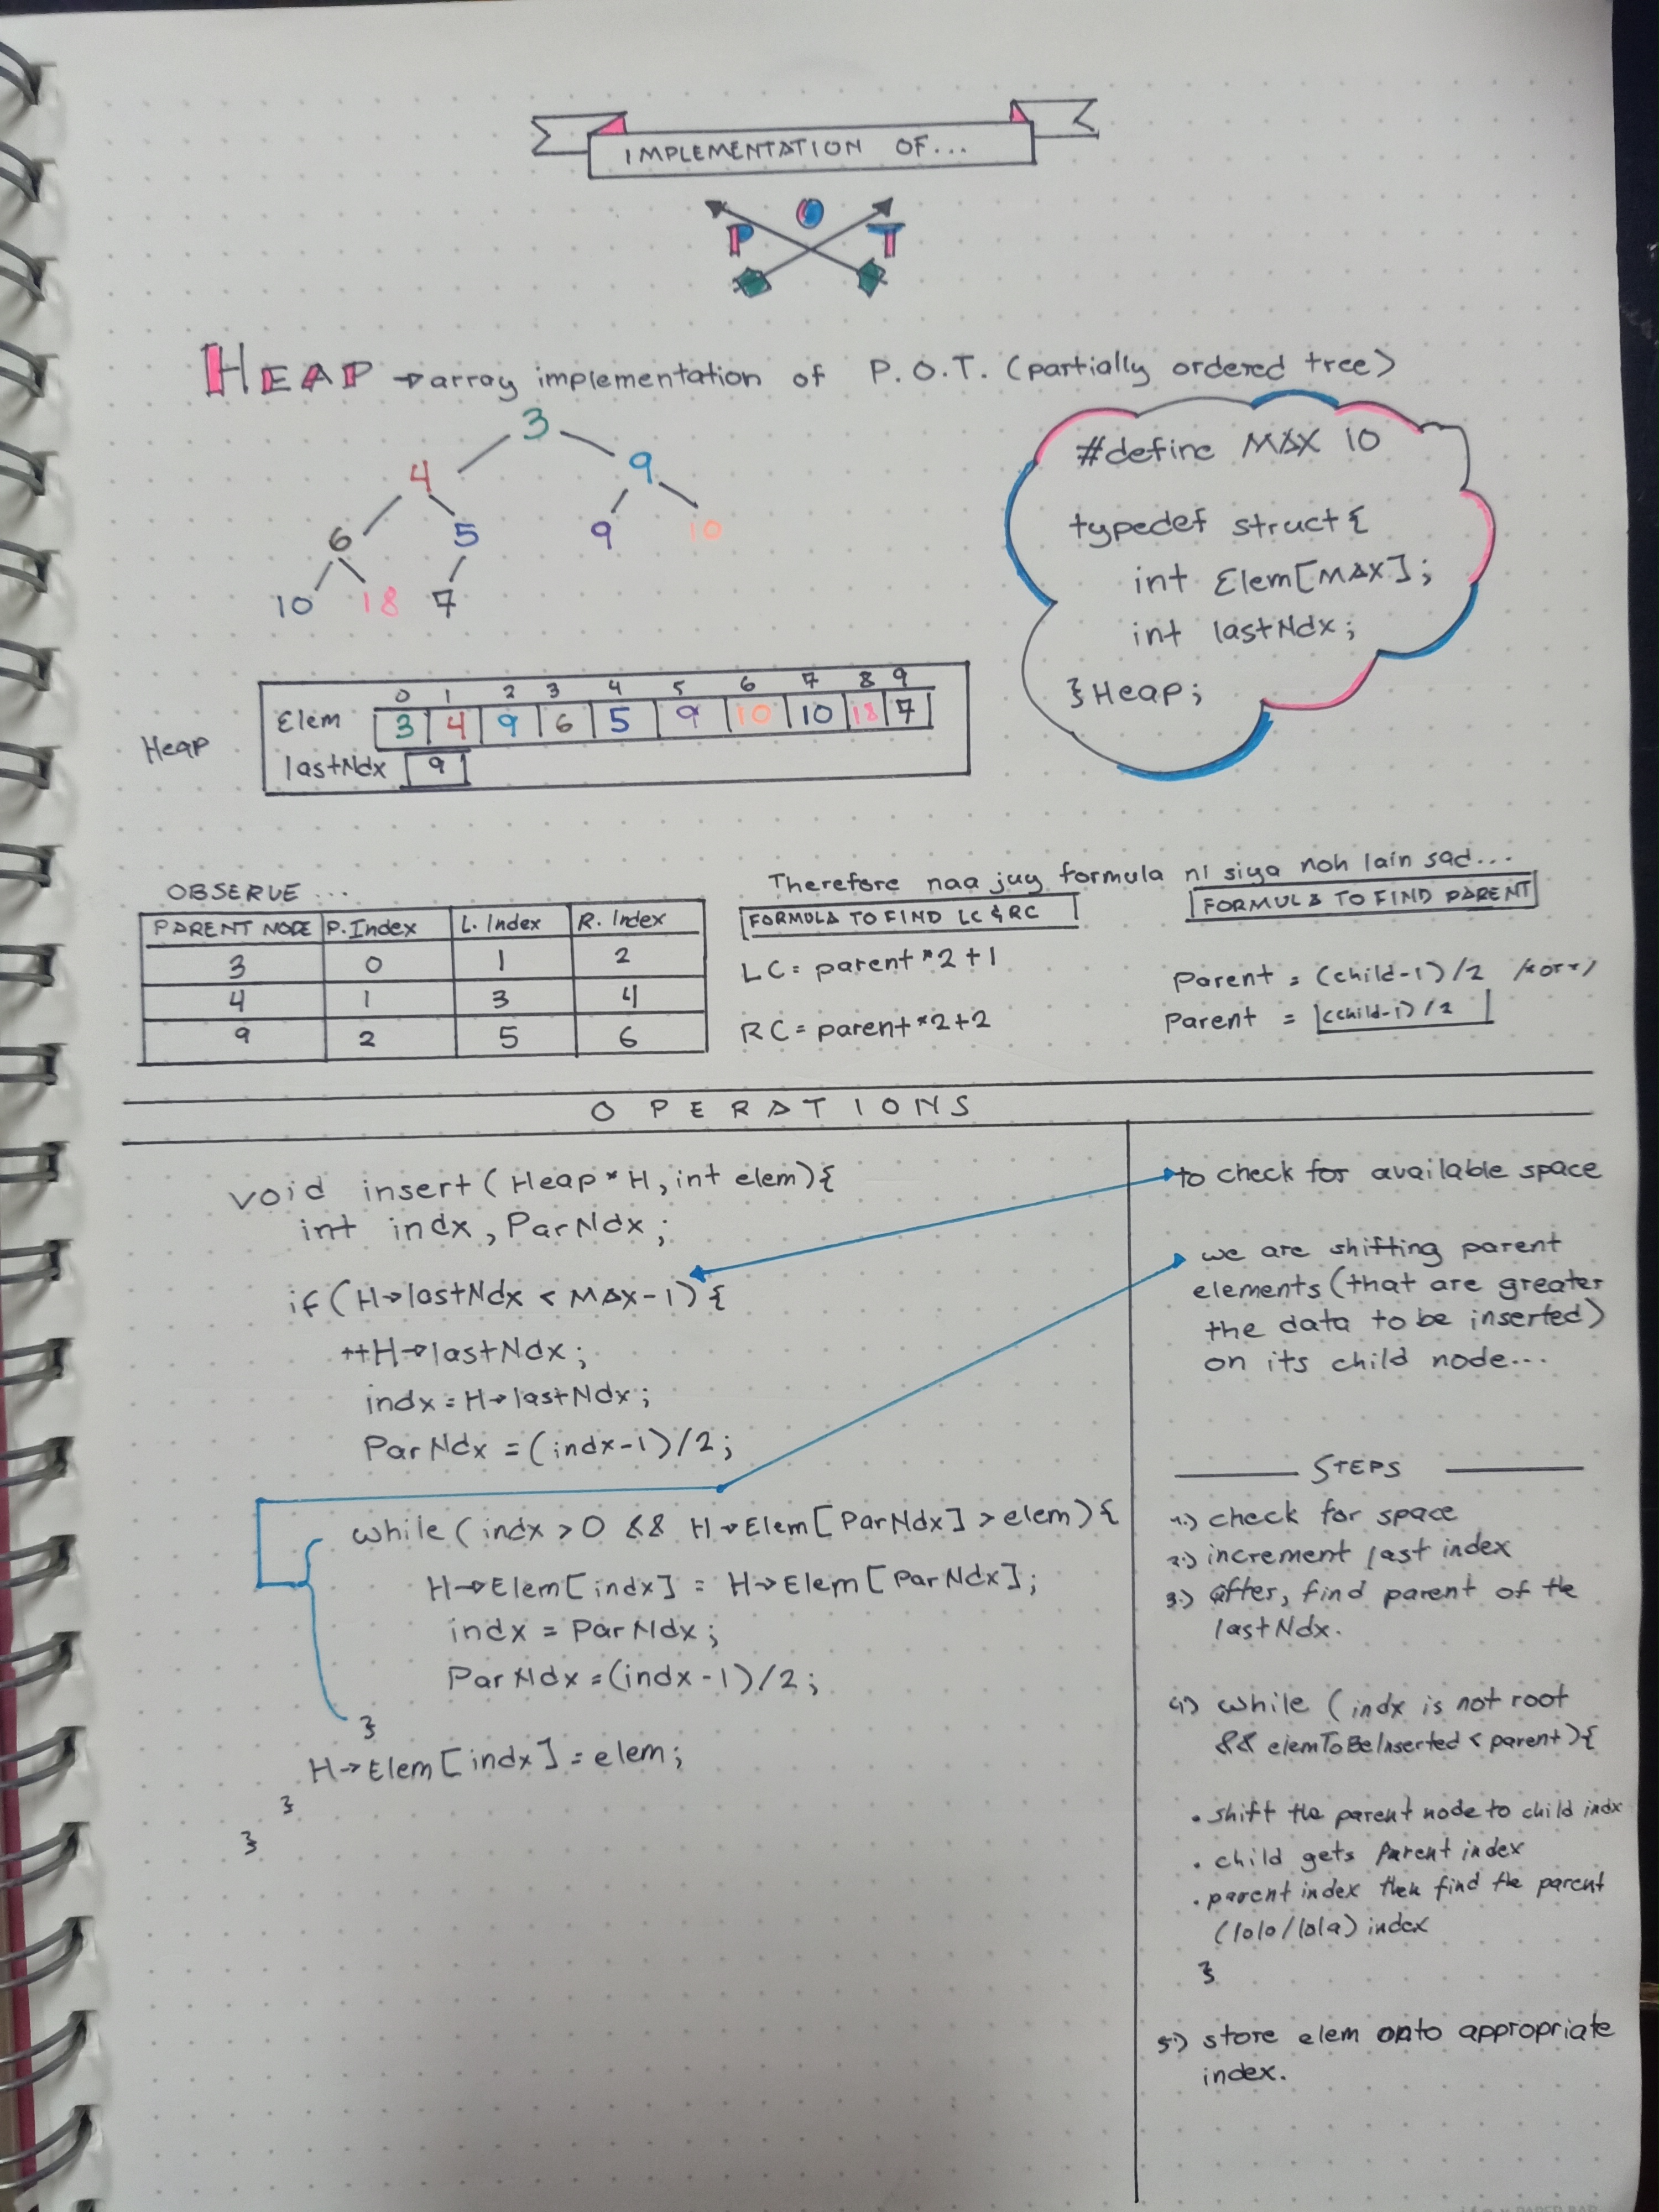 IMPLEMENTATION OF...
P O T
HEAP → array implementation of P.O.T. (partially ordered tree)
3
4 9
6 5 9 10
10 18 7
#define MAX 10
typedef struct{
int Elem[MAX];
int lastNdx;
}Heap;
0 1 2 3 4 5 6 7 8 9
Elem 3 4 9 6 5 9 10 10 18 7
Heap
lastNdx 9
OBSERVE ...
PARENT NODE P. Index L. Index R. Index
3 0 1 2
4 1 3 4
9 2 5 6
Therefore naa juy formula ni siya noh lain sad...
FORMULA TO FIND LC & RC
LC = parent*2+1
RC = parent*2+2
FORMULA TO FIND PARENT
Parent = (child-1)/2 /*or*/
Parent = ⌊(child-1)/2⌋
OPERATIONS
void insert(Heap*H, int elem){
int indx, ParNdx;
if(H→lastNdx < MAX-1){
++H→lastNdx;
indx = H→lastNdx;
ParNdx = (indx-1)/2;
while(indx > 0 && H→Elem[ParNdx] > elem){
H→Elem[indx] = H→Elem[ParNdx];
indx = ParNdx;
ParNdx = (indx-1)/2;
}
H→Elem[indx] = elem;
}
}
to check for available space
we are shifting parent
elements (that are greater
the data to be inserted)
on its child node...
STEPS
1.) check for space
2.) increment last index
3.) after, find parent of the
lastNdx.
4.) while (indx is not root
&& elemToBeInserted < parent){
• shift the parent node to child indx
• child gets Parent index
• parent index then find the parent
(lolo/lola) index
}
5.) store elem onto appropriate
index.